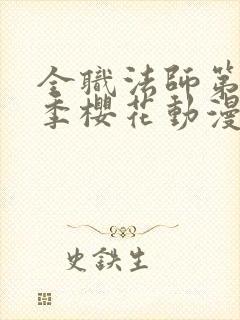 全職法師第
季櫻花動漫
史鉄生